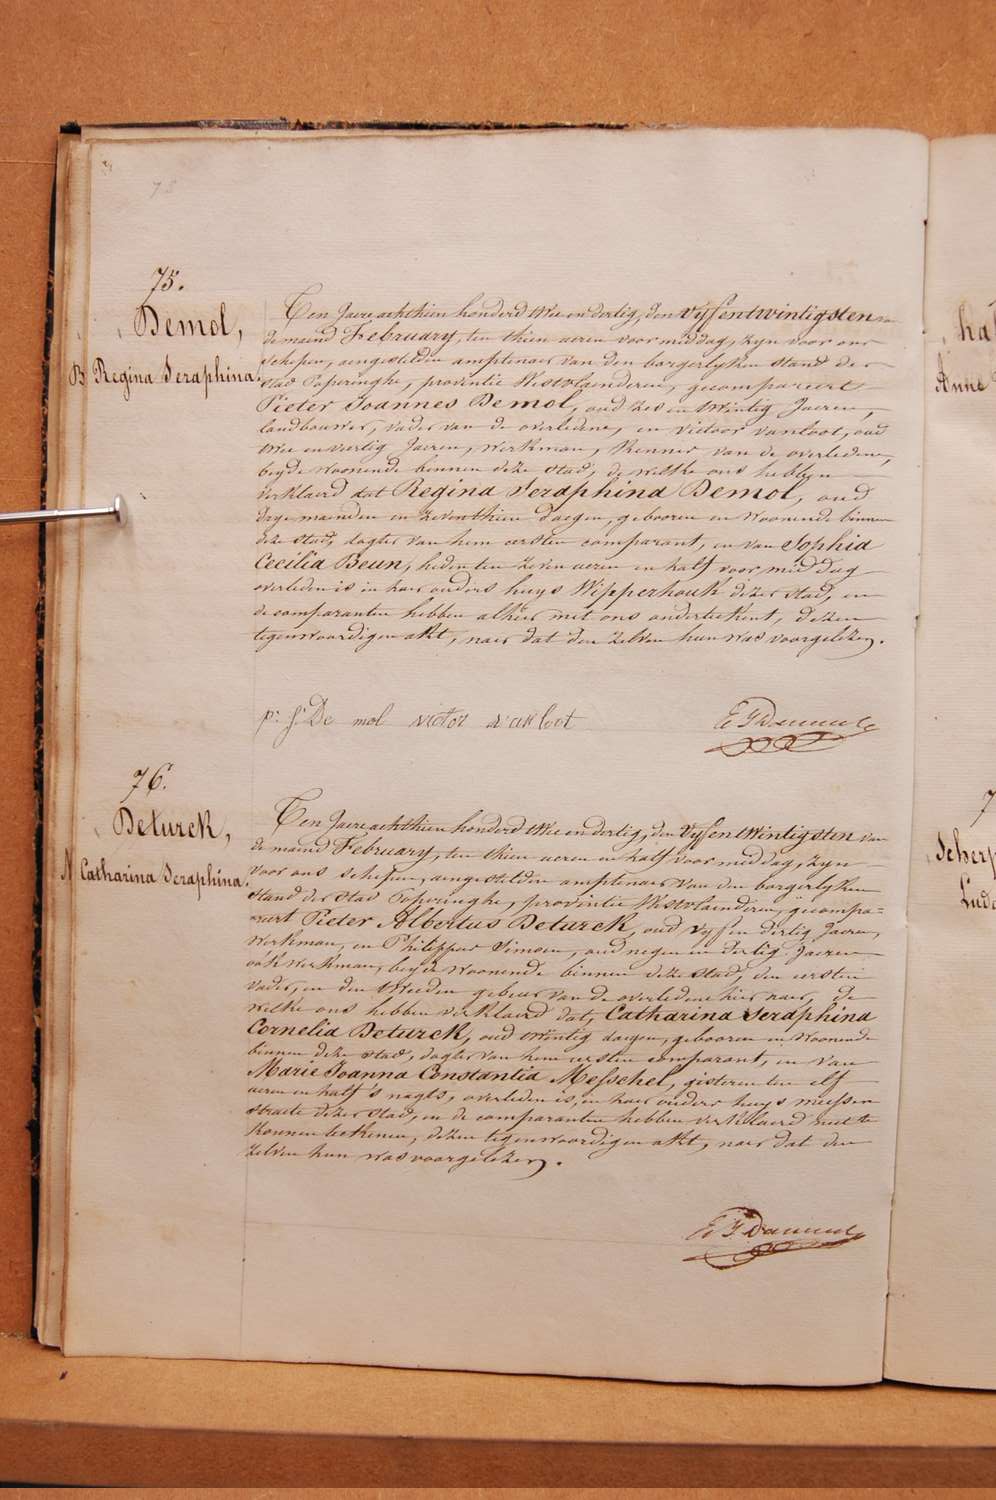 75.
Demol,
B Regina Seraphina.
Ten Jaere achthien honderd twee en dertig, den vyfentwintigsten van
de maend February, ten thien ueren voor middag, zyn voor ons
schepen, aengestelden amptenaer van den borgerlyken stand der
stad Poperinghe, provintie Westvlaenderen, gecompareert
Pieter Joannes Demol, oud zes en twintig Jaeren,
landbouwer, vader van de overledene, en victoor vanloot, oud
twee en veertig Jaeren, werkman, kenner van de overledene,
beyde woonende binnen deze stad, de welke ons hebben
verklaerd dat Regina Seraphina Demol, oud
dry maenden en zeventhien daegen, gebooren en woonende binnen
deze stad, dogter van hem eersten comparant, en van Sophia
Cecilia Beun, heden ten zeven ueren en half voor middag
overleden is in haer ouders huys Wipperhouk dezer stad, en
de comparanten hebben alhier met ons onderteekent, dezen
tegenwoordigen akt, naer dat den zelven hun was voorgelezen.
p: j: De mol victor
76.
Deturck,
N Catharina Seraphina.
Ten Jaere achthien honderd twee en dertig, den vyfentwintigsten van
de maend February, ten thien ueren en half voor middag, zyn
voor ons schepen, aengestelden amptenaer van den borgerlyken
stand der stad Poperinghe, provintie Westvlaenderen, gecompa=
reert Pieter Albertus Deturck, oud vyf en dertig Jaeren,
werkman, en Philippus Simoen, oud negen en dertig Jaeren
ook werkman, beyde woonende binnen deze stad, den eersten
vader, en den tweeden gebuer van de overledene hier naer, de
welke ons hebben verklaerd dat, Catharina Seraphina
Cornelia Deturck, oud twintig daegen, gebooren en woonende
binnen deze stad, dogter van hem eersten comparant, en van
Marie Joanna Constantia Messchel, gisteren ten elf
ueren en half 's nagts, overleden is, in haer ouders huys meessen
straete dezer stad, en de comparanten hebben verklaerd niet te
konnen teekenen, dezen tegenwoordigen akt, naer dat den
zelven hun was voorgelezen.